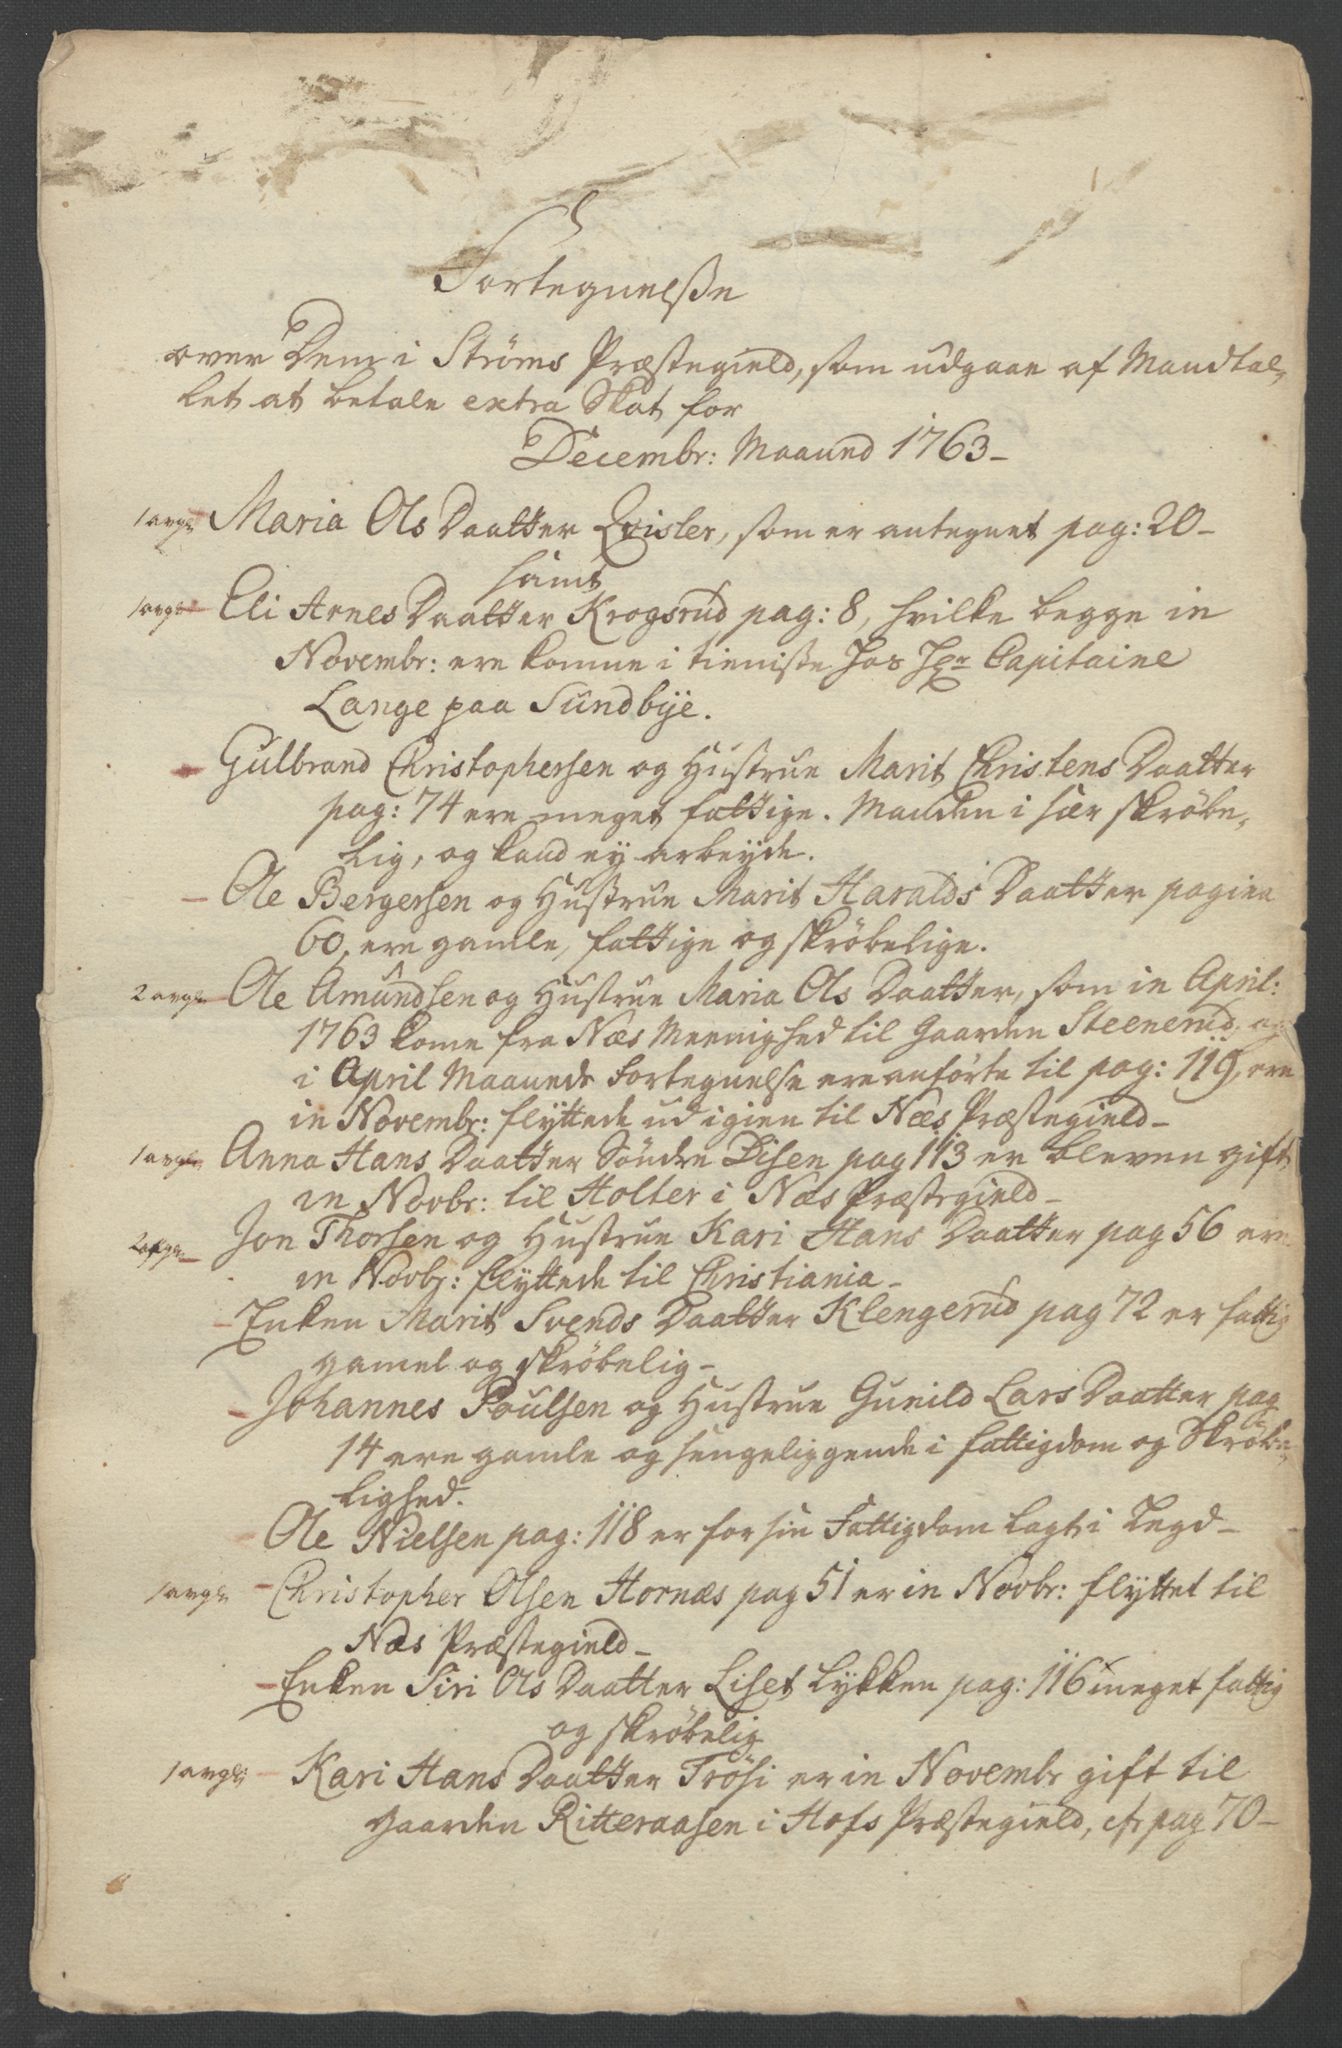 Fortegnelsße
over Dem i Strøms Præstegield, som udgaae af Mandtal-
let at betale extra Skat for
Decembr: Maaned 1763-
Maria Ols Daatter Qvisler, som er antegnet pag: 20-
samt
Eli Arnes Daatter Krogsrud pag: 8, hvilke begge in
Novembr: ere komne i tieniste hos Hr Capitaine
Lange paa Sundbÿe.
Gulbrand Christophersen og Hustrue Marit Christens Daatter
pag: 74 ere meget fattige. Manden i sær skrøbe-
lig, og kand ey arbeyde.
Ole Bergersen og Hustrue Marit Haralds Daatter pagina
60, ere gamle, fattige og skrøbelige.
2 Ole Amundsen og Hustrue Maria Ols Daatter, som in April:
1763 kome fra Næs Meenighed til Gaarden Steenerud, og
i April Maaneds Fortegnelse ere anførte til pag: 119, ere
in Novembr: flyttede ud igien til Næs Præstegield-
Anna Hans Daatter Søndre Disen pag 113 er bleven gift
in Novbr: til Holter i Næs Præstegield-
Jon Thorsen og Hustrue Kari Hans Daatter pag 56 ere
in Novbr: flyttede til Christiania-
Enken Marit Svends Daatter Klengerud pag 72 er fattig
gamel og skrøbelig-
Johannes Poulsen og Hustrue Gunild Lars Daatter pag
14 ere gamle og sengeliggende i fattigdom og Skrøbe-
lighed.
Ole Nielsen pag: 118 er for sin Fattigdom lagt i Legd-
Christopher Olsen Hornæs pag 51 er in Novbr: flyttet til
Næs Præstegield-
Enken Siri Ols Daatter Liset Lykken pag: 116 meget fattig
og skrøbelig
Kari Hans Daatter Trøsi er in Novembr gift til
Gaarden Ritteraasen i Hofs Præstegield, cfr pag 70-